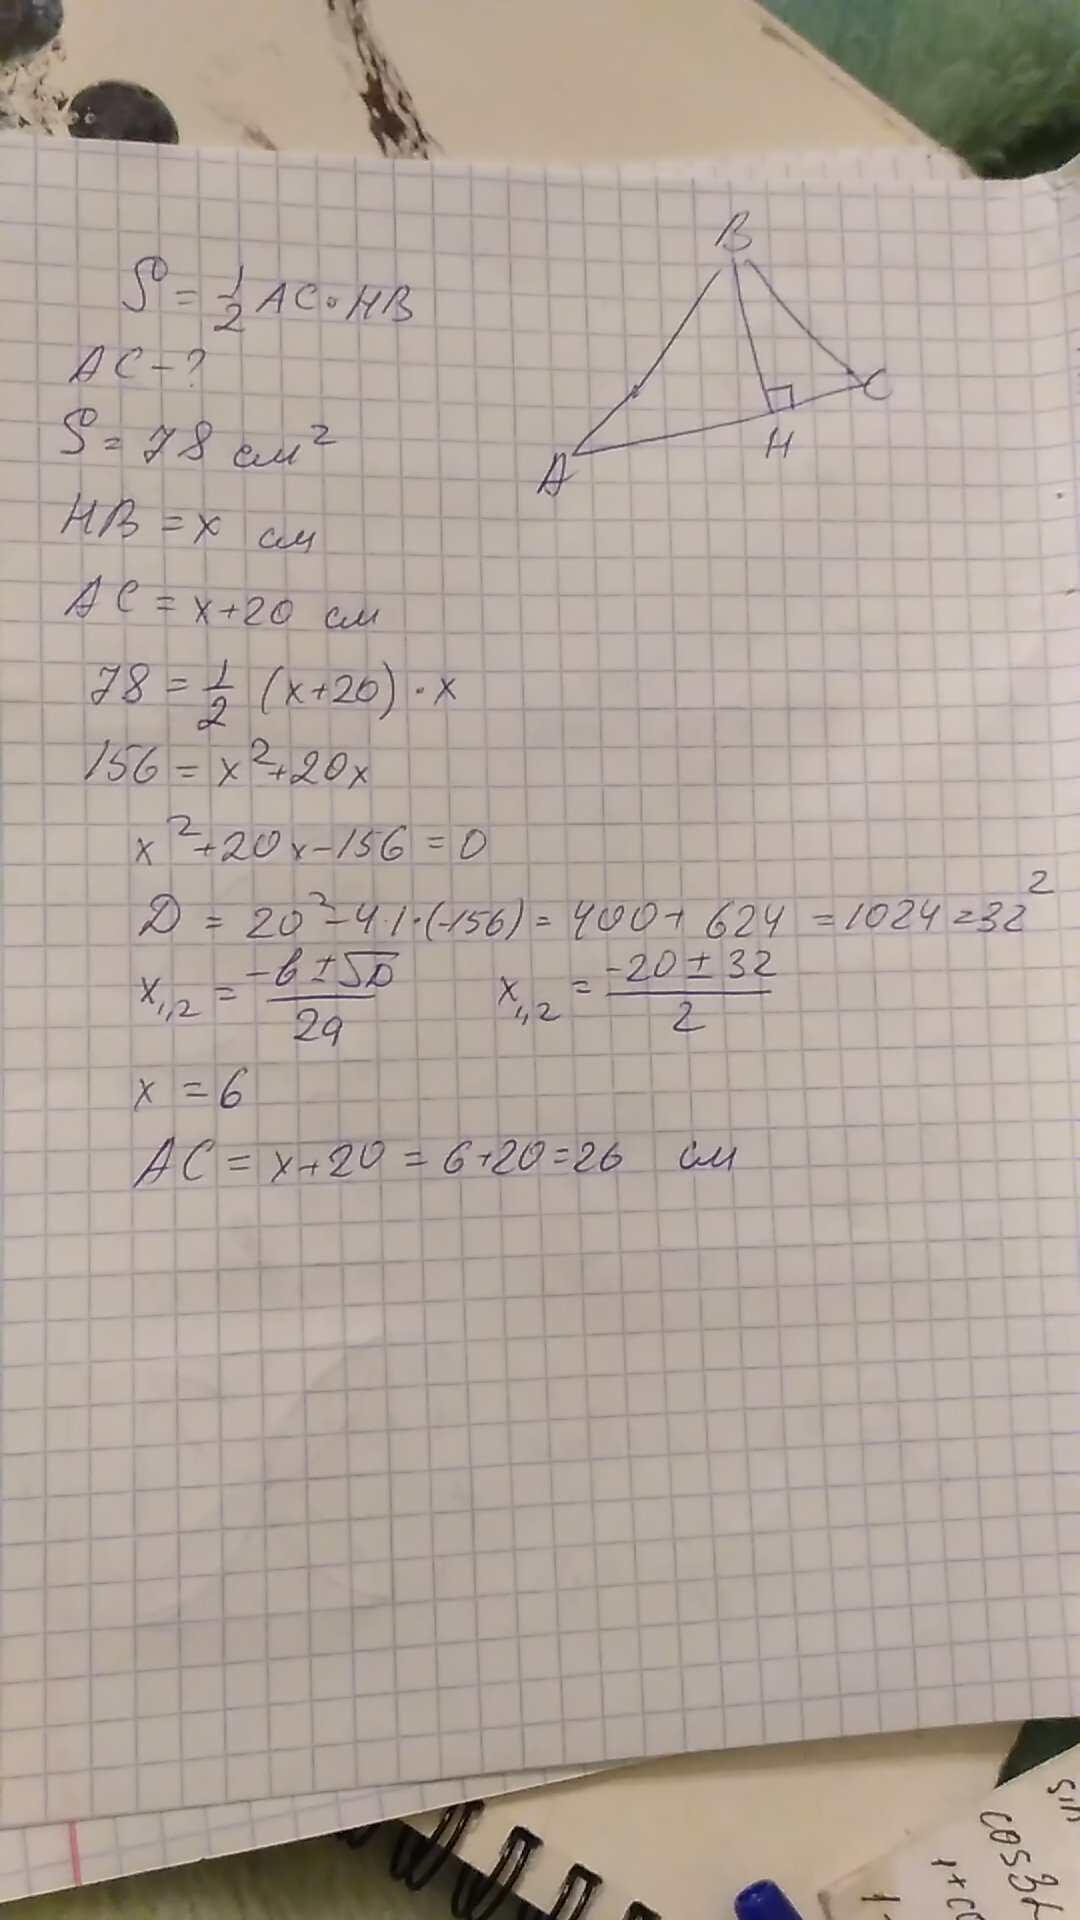 S = 1/2 AC · HB
B
A
H
C
AC - ?
S = 78 см²
HB = x см
AC = x+20 см
78 = 1/2 (x+20) · x
156 = x²+20x
x²+20x-156 = 0
D = 20²-4·1·(-156) = 400+ 624 = 1024 = 32²
x₁,₂ = (-b ± √D)/2a x₁,₂ = (-20 ± 32)/2
x = 6
AC = x+20 = 6+20=26 см
sin
cos3